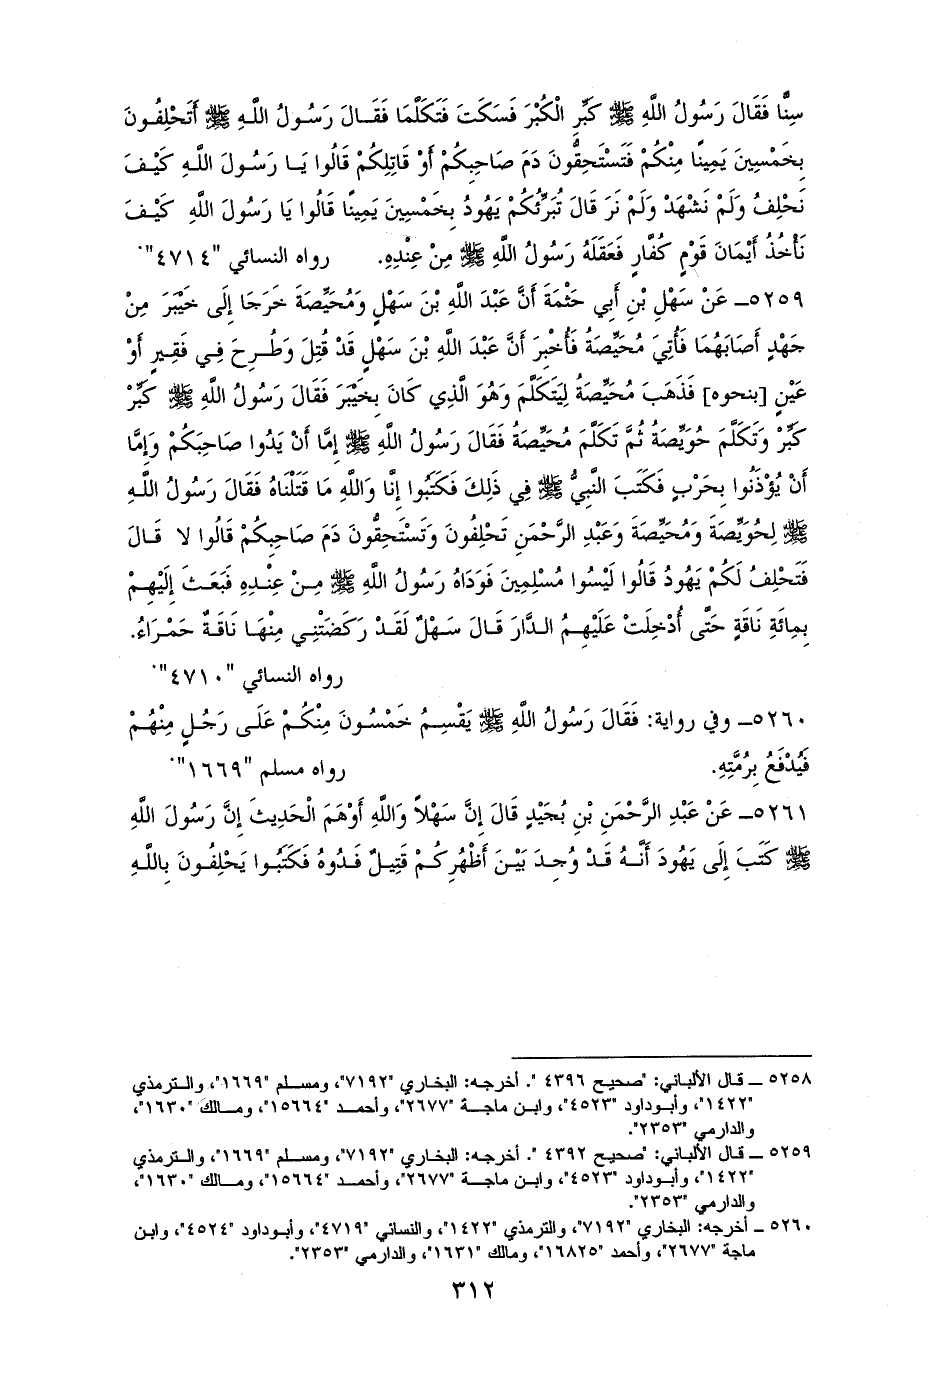 سِنًّا فَقَالَ رَسُولُ اللَّهِ ﷺ كَبِّرِ الْكُبْرَ فَسَكَتَ فَتَكَلَّمَا فَقَالَ رَسُولُ اللَّهِ ﷺ أَتَحْلِفُونَ
بِخَمْسِينَ يَمِينًا مِنْكُمْ فَتَسْتَحِقُّونَ دَمَ صَاحِبِكُمْ أَوْ قَاتِلِكُمْ قَالُوا يَا رَسُولَ اللَّهِ كَيْفَ
نَحْلِفُ وَلَمْ نَشْهَدْ وَلَمْ نَرَ قَالَ تُبَرِّئُكُمْ يَهُودُ بِخَمْسِينَ يَمِينًا قَالُوا يَا رَسُولَ اللَّهِ كَيْفَ
نَأْخُذُ أَيْمَانَ قَوْمٍ كُفَّارٍ فَعَقَلَهُ رَسُولُ اللَّهِ ﷺ مِنْ عِنْدِهِ. رواه النسائي "٤٧١٤".
٥٢٥٩ـ عَنْ سَهْلِ بْنِ أَبِي حَثْمَةَ أَنَّ عَبْدَ اللَّهِ بْنَ سَهْلٍ وَمُحَيِّصَةَ خَرَجَا إِلَى خَيْبَرَ مِنْ
جَهْدٍ أَصَابَهُمَا فَأُتِيَ مُحَيِّصَةُ فَأُخْبِرَ أَنَّ عَبْدَ اللَّهِ بْنَ سَهْلٍ قَدْ قُتِلَ وَطُرِحَ فِي فَقِيرٍ أَوْ
عَيْنٍ [بنحوه] فَذَهَبَ مُحَيِّصَةُ لِيَتَكَلَّمَ وَهُوَ الَّذِي كَانَ بِخَيْبَرَ فَقَالَ رَسُولُ اللَّهِ ﷺ كَبِّرْ
كَبِّرْ وَتَكَلَّمَ حُوَيِّصَةُ ثُمَّ تَكَلَّمَ مُحَيِّصَةُ فَقَالَ رَسُولُ اللَّهِ ﷺ إِمَّا أَنْ يَدُوا صَاحِبَكُمْ وَإِمَّا
أَنْ يُؤْذَنُوا بِحَرْبٍ فَكَتَبَ النَّبِيُّ ﷺ فِي ذَلِكَ فَكَتَبُوا إِنَّا وَاللَّهِ مَا قَتَلْنَاهُ فَقَالَ رَسُولُ اللَّهِ
ﷺ لِحُوَيِّصَةَ وَمُحَيِّصَةَ وَعَبْدِ الرَّحْمَنِ تَحْلِفُونَ وَتَسْتَحِقُّونَ دَمَ صَاحِبِكُمْ قَالُوا لا قَالَ
فَتَحْلِفُ لَكُمْ يَهُودُ قَالُوا لَيْسُوا مُسْلِمِينَ فَوَدَاهُ رَسُولُ اللَّهِ ﷺ مِنْ عِنْدِهِ فَبَعَثَ إِلَيْهِمْ
بِمِائَةِ نَاقَةٍ حَتَّى أُدْخِلَتْ عَلَيْهِمُ الدَّارَ قَالَ سَهْلٌ لَقَدْ رَكَضَتْنِي مِنْهَا نَاقَةٌ حَمْرَاءُ.
رواه النسائي "٤٧١٠".
٥٢٦٠ـ وفي رواية: فَقَالَ رَسُولُ اللَّهِ ﷺ يَقْسِمُ خَمْسُونَ مِنْكُمْ عَلَى رَجُلٍ مِنْهُمْ
فَيُدْفَعُ بِرُمَّتِهِ. رواه مسلم "١٦٦٩".
٥٢٦١ـ عَنْ عَبْدِ الرَّحْمَنِ بْنِ بُجَيْدٍ قَالَ إِنَّ سَهْلاً وَاللَّهِ أَوْهَمَ الْحَدِيثَ إِنَّ رَسُولَ اللَّهِ
ﷺ كَتَبَ إِلَى يَهُودَ أَنَّهُ قَدْ وُجِدَ بَيْنَ أَظْهُرِكُمْ قَتِيلٌ فَدُوهُ فَكَتَبُوا يَحْلِفُونَ بِاللَّهِ
٥٢٥٨ ـ قال الألباني: "صحيح ٤٣٩٦ ". أخرجه: البخاري "٧١٩٢"، ومسلم "١٦٦٩"، والترمذي
"١٤٢٢"، وأبوداود "٤٥٢٣"، وابن ماجة "٢٦٧٧"، وأحمد "١٥٦٦٤"، ومالك "١٦٣٠"،
والدارمي "٢٣٥٣".
٥٢٥٩ ـ قال الألباني: "صحيح ٤٣٩٢ ". أخرجه: البخاري "٧١٩٢"، ومسلم "١٦٦٩"، والترمذي
"١٤٢٢"، وأبوداود "٤٥٢٣"، وابن ماجة "٢٦٧٧"، وأحمد "١٥٦٦٤"، ومالك "١٦٣٠"،
والدارمي "٢٣٥٣".
٥٢٦٠ ـ أخرجه: البخاري "٧١٩٢"، والترمذي "١٤٢٢"، والنسائي "٤٧١٩"، وأبوداود "٤٥٢٤"، وابن
ماجة "٢٦٧٧"، وأحمد "١٦٨٢٥"، ومالك "١٦٣١"، والدارمي "٢٣٥٣".
٣١٢